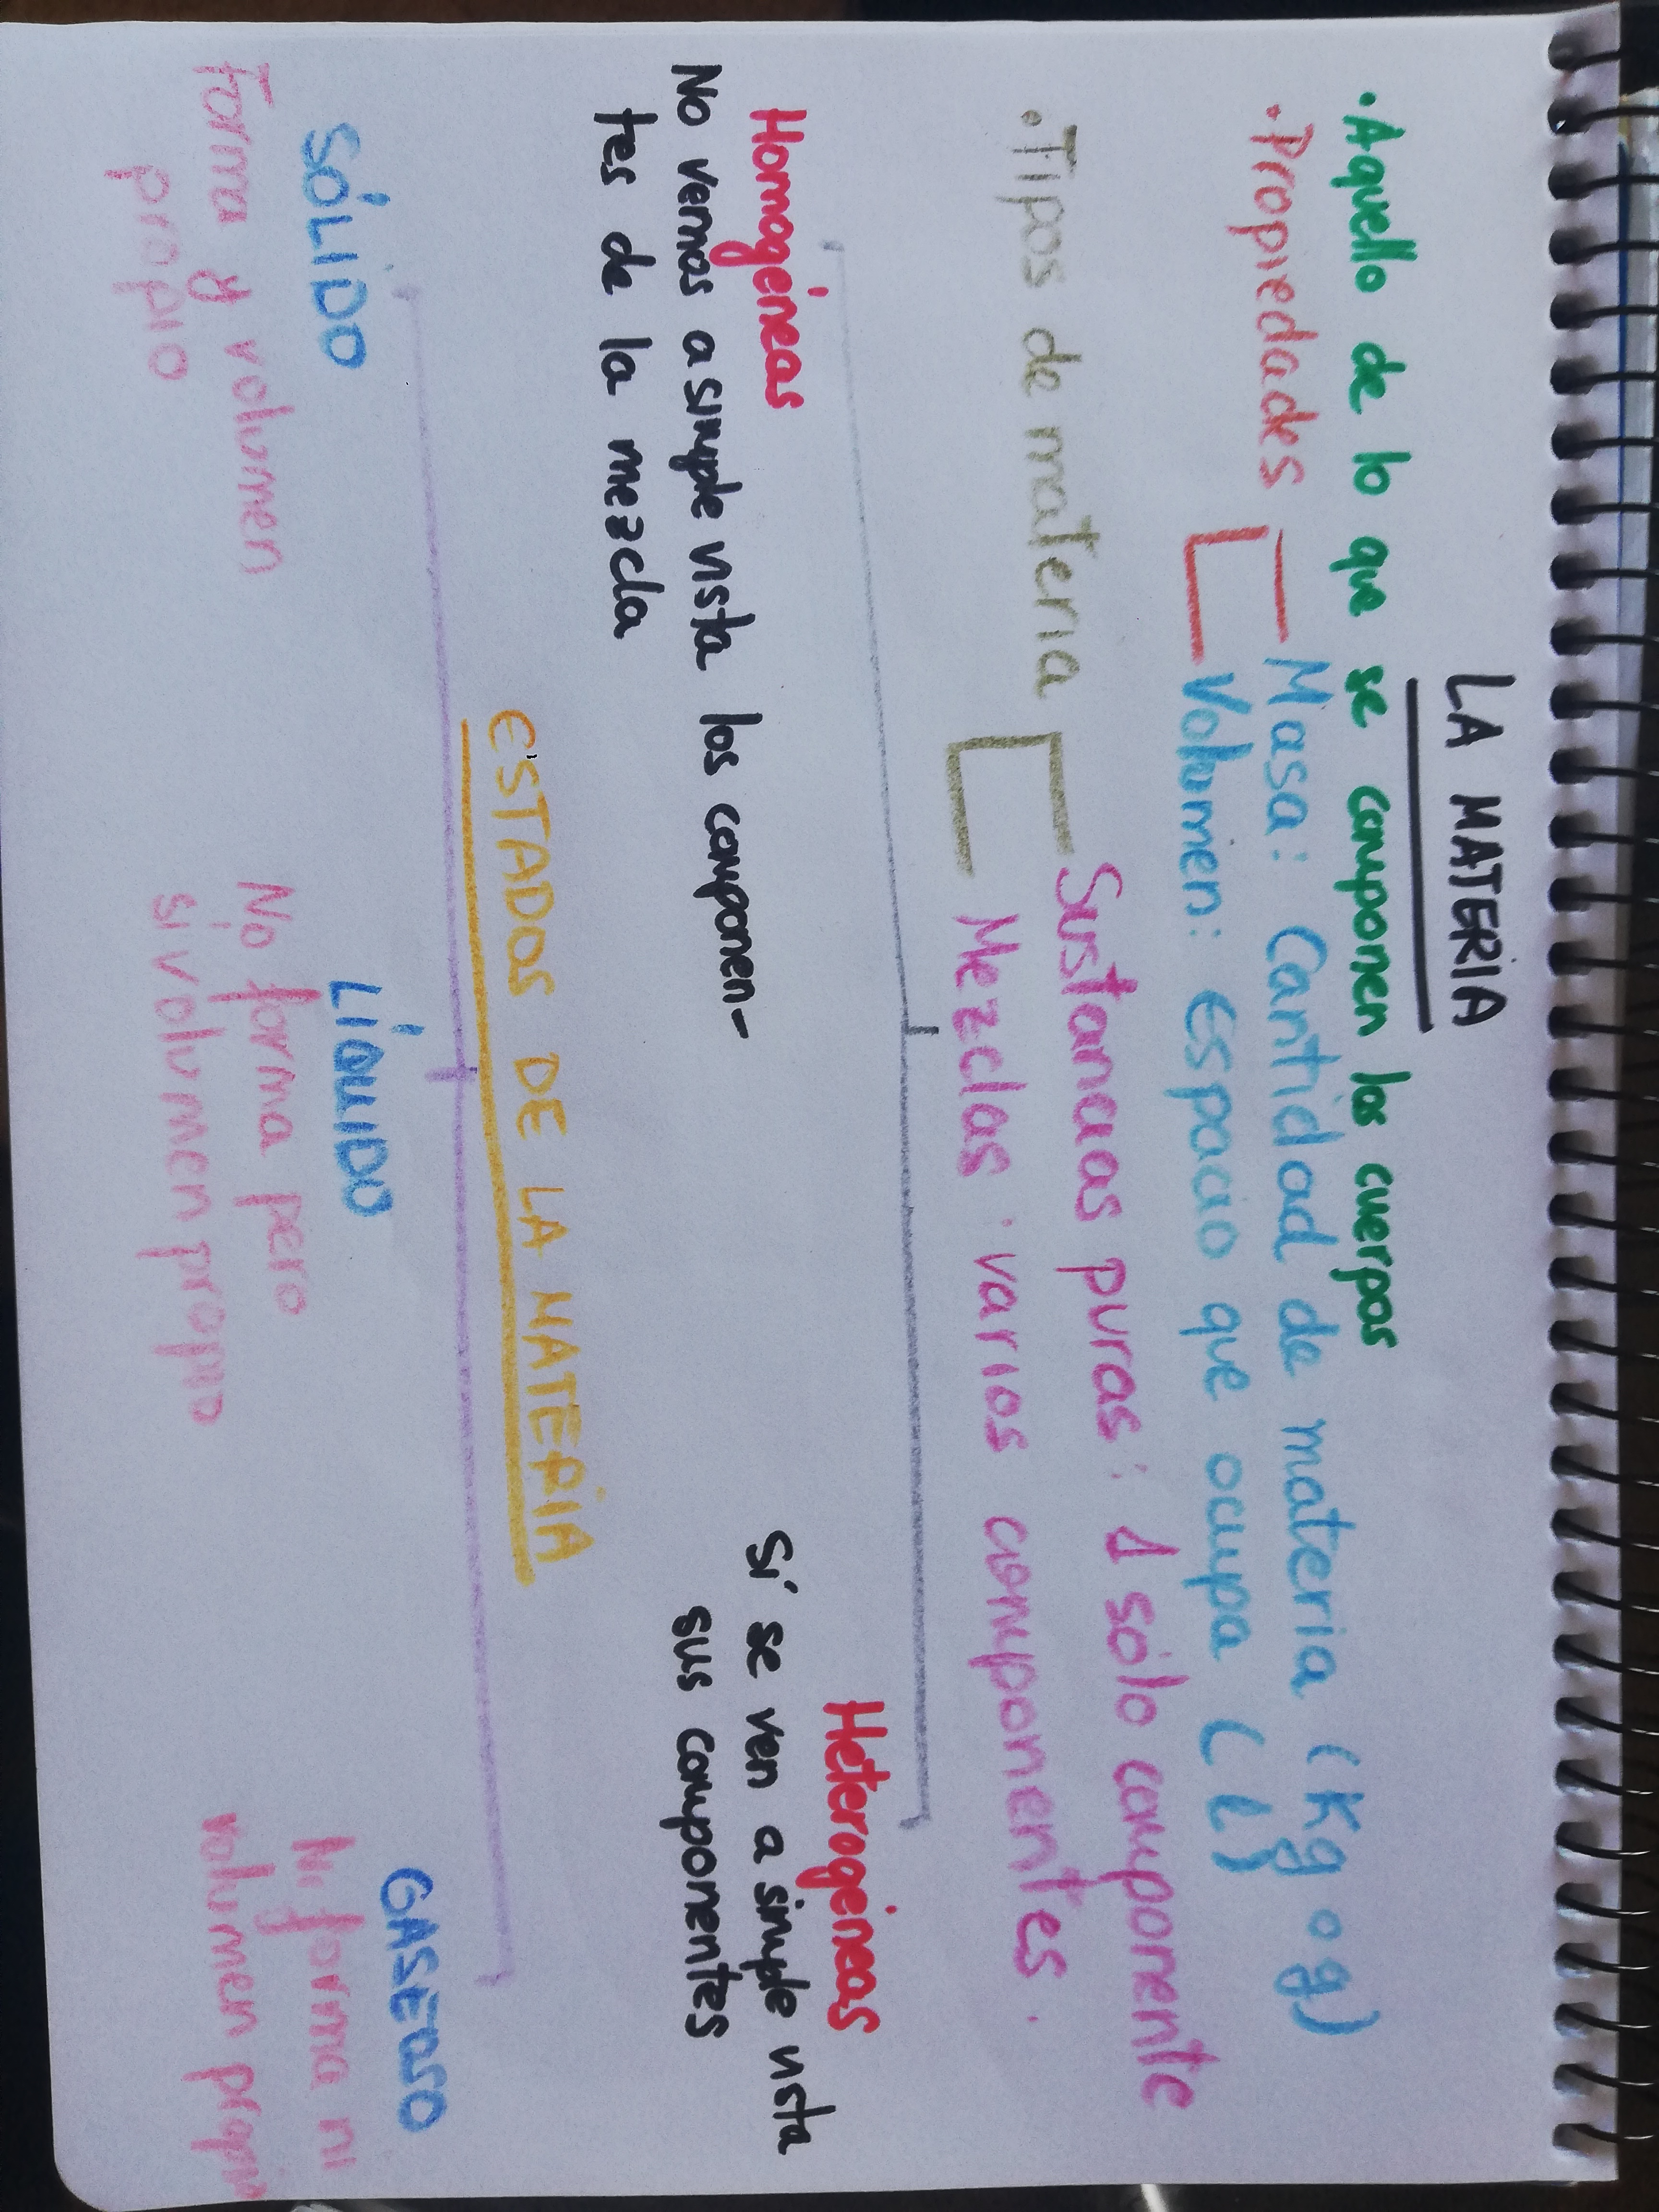 LA MATERIA
· Aquello de lo que se componen los cuerpos
· Propiedades
Masa: Cantidad de materia (Kg o g)
Volumen: Espacio que ocupa (l)
· Tipos de materia
Sustancias puras: 1 sólo componente
Mezclas: varios componentes.
Homogéneas
No vemos a simple vista los componen-
tes de la mezcla
Heterogéneas
Sí se ven a simple vista
sus componentes
ESTADOS DE LA MATERIA
SÓLIDO
Forma y volumen
propio
LÍQUIDO
No forma pero
si volumen propio
GASEOSO
Ni forma ni
volumen propio